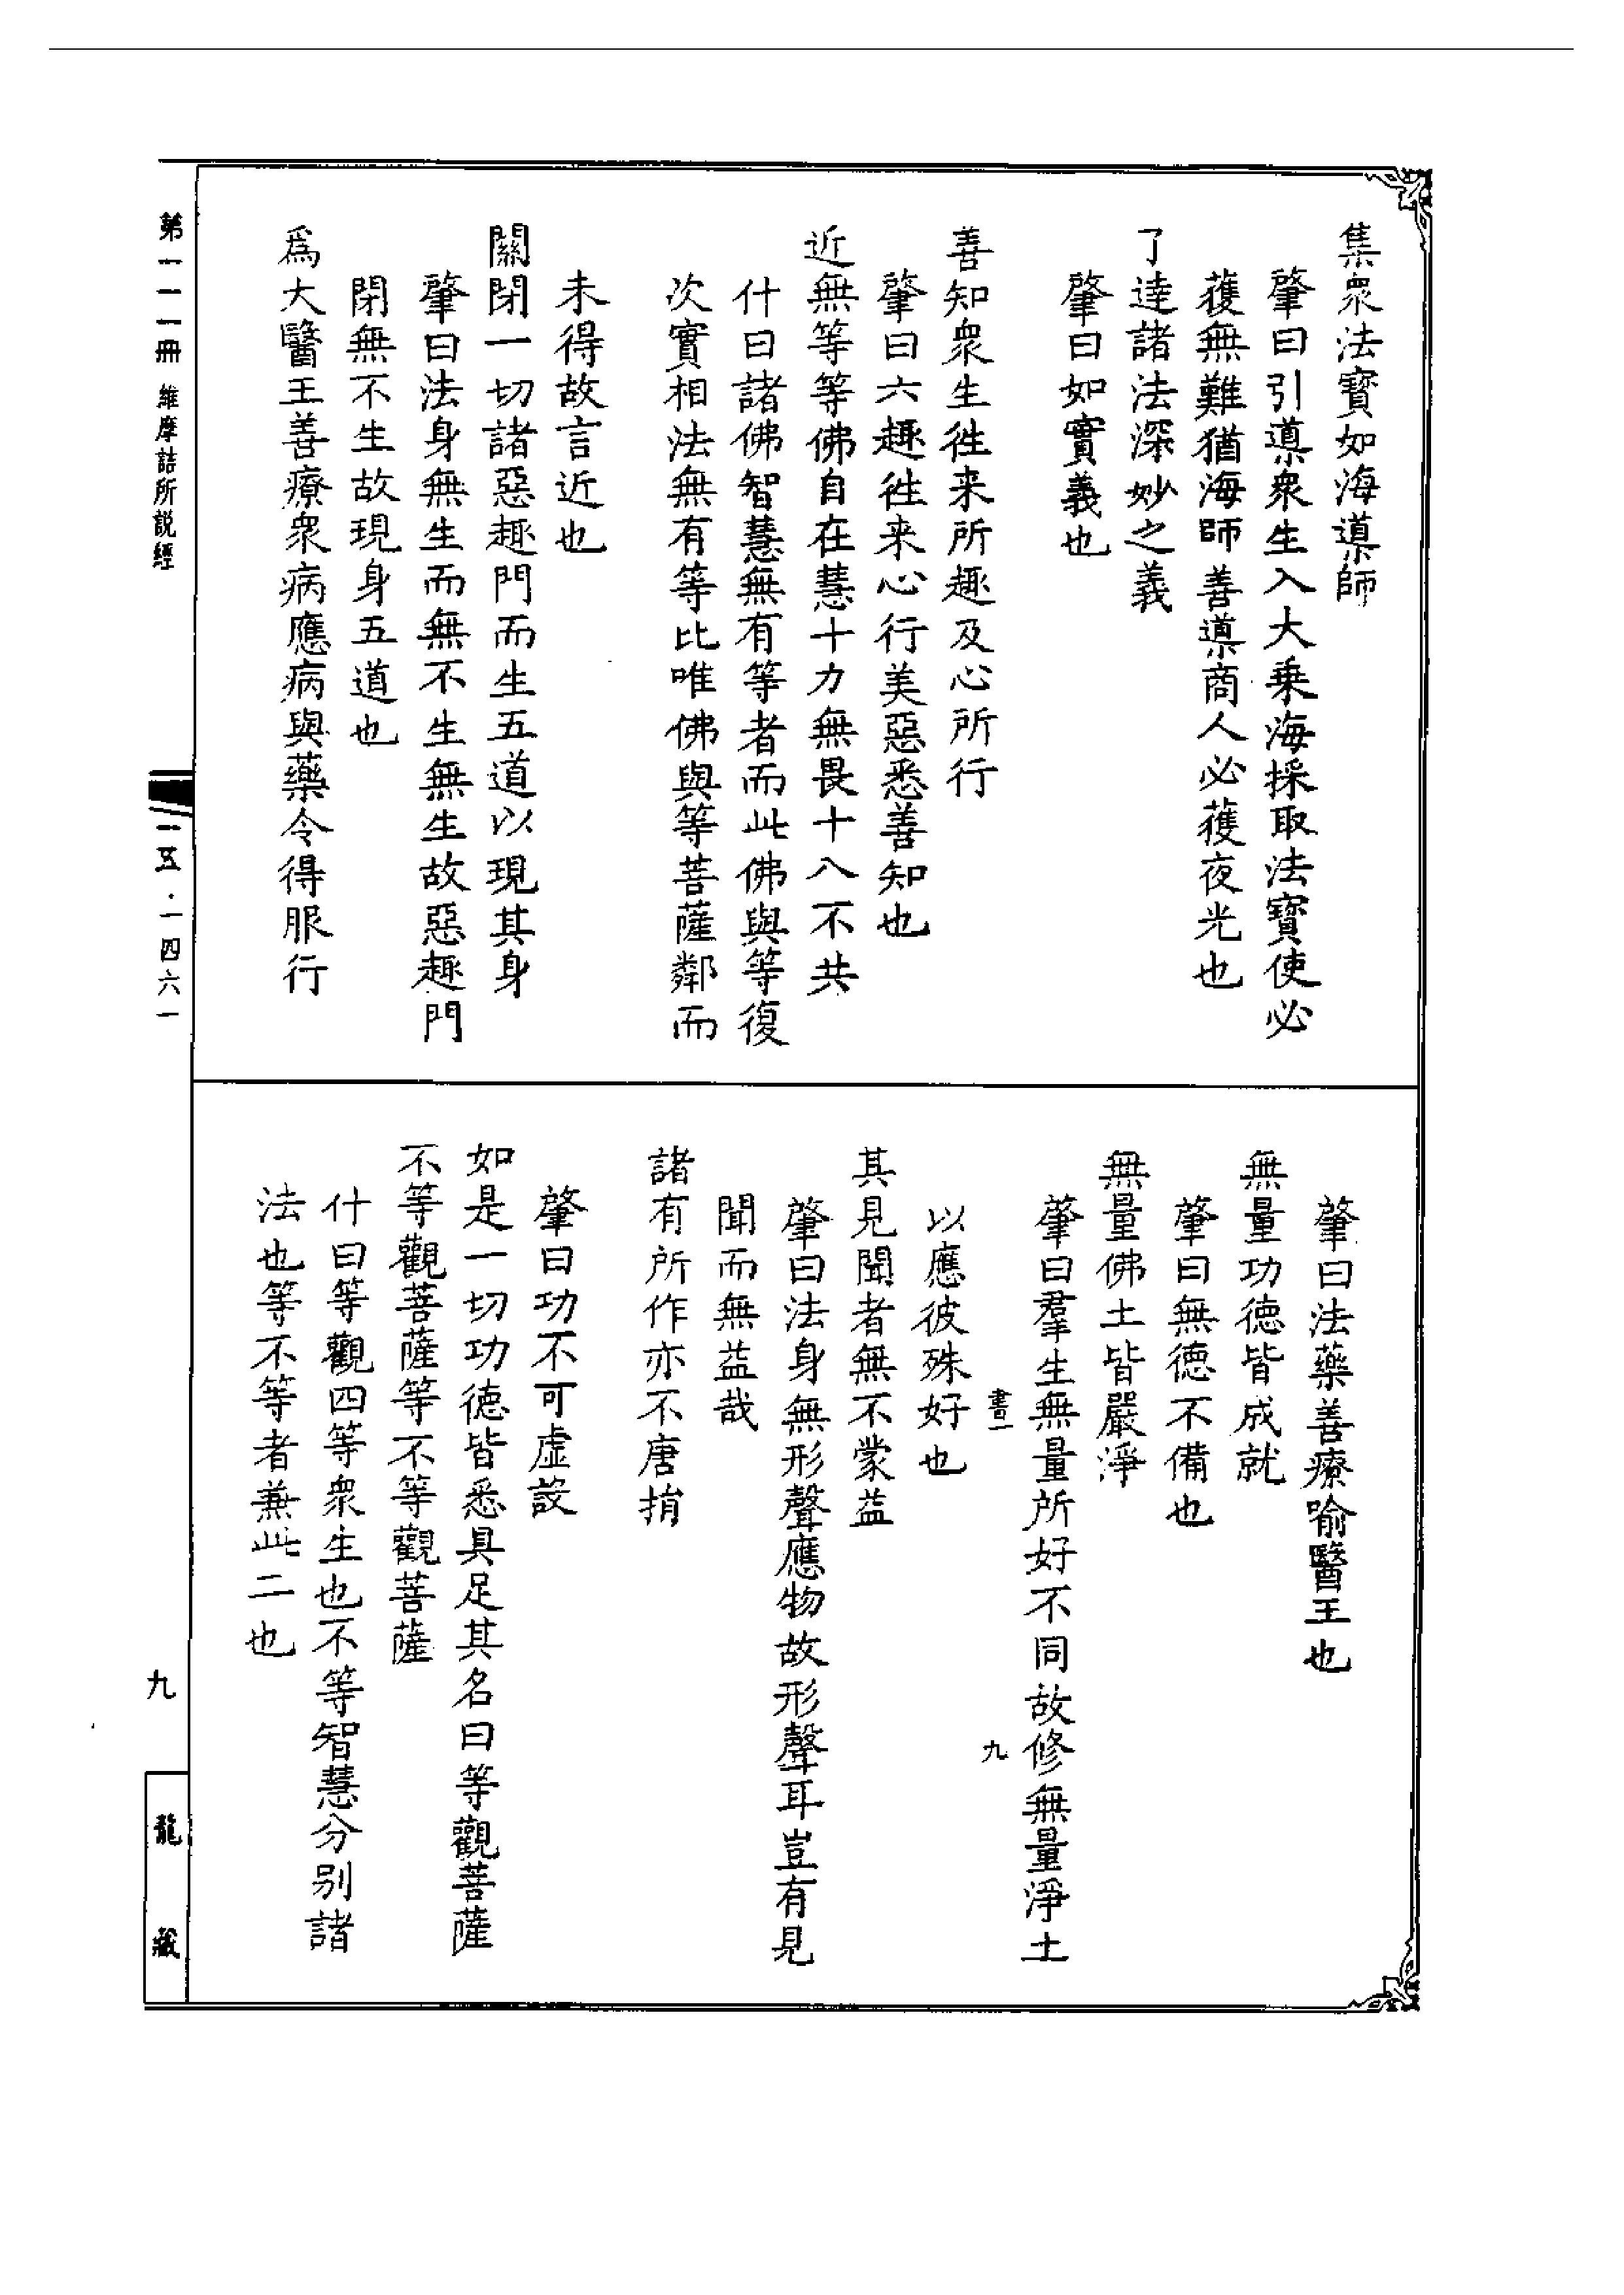 集衆法寳如海導師
肇曰引導衆生入大乗海採取法寳使必
獲無難猶海師善導商人必獲夜光也
了逹諸法深妙之義
肇曰如實義也
善知衆生徃来所趣及心所行
肇曰六趣徃来心行美惡悉善知也
近無等等佛自在慧十力無畏十八不共
什曰諸佛智慧無有等者而此佛與等復
次實相法無有等比唯佛與等菩薩鄰而
未得故言近也
關閉一切諸惡趣門而生五道以現其身
肇曰法身無生而無不生無生故惡趣門
閉無不生故現身五道也
爲大醫王善療衆病應病與藥令得服行
肇曰法藥善療喻醫王也
無量功德皆成就
肇曰無德不備也
無量佛土皆嚴淨
肇曰羣生無量所好不同故修無量淨土
書一
九
以應彼殊好也
其見聞者無不蒙益
肇曰法身無形聲應物故形聲耳豈有見
聞而無益哉
諸有所作亦不唐捐
肇曰功不可虛設
如是一切功德皆悉具足其名曰等觀菩薩
不等觀菩薩等不等觀菩薩
什曰等觀四等衆生也不等智慧分别諸
法也等不等者兼此二也
第一一一冊 維摩詰所説經
一五·一四六一
九
龍藏